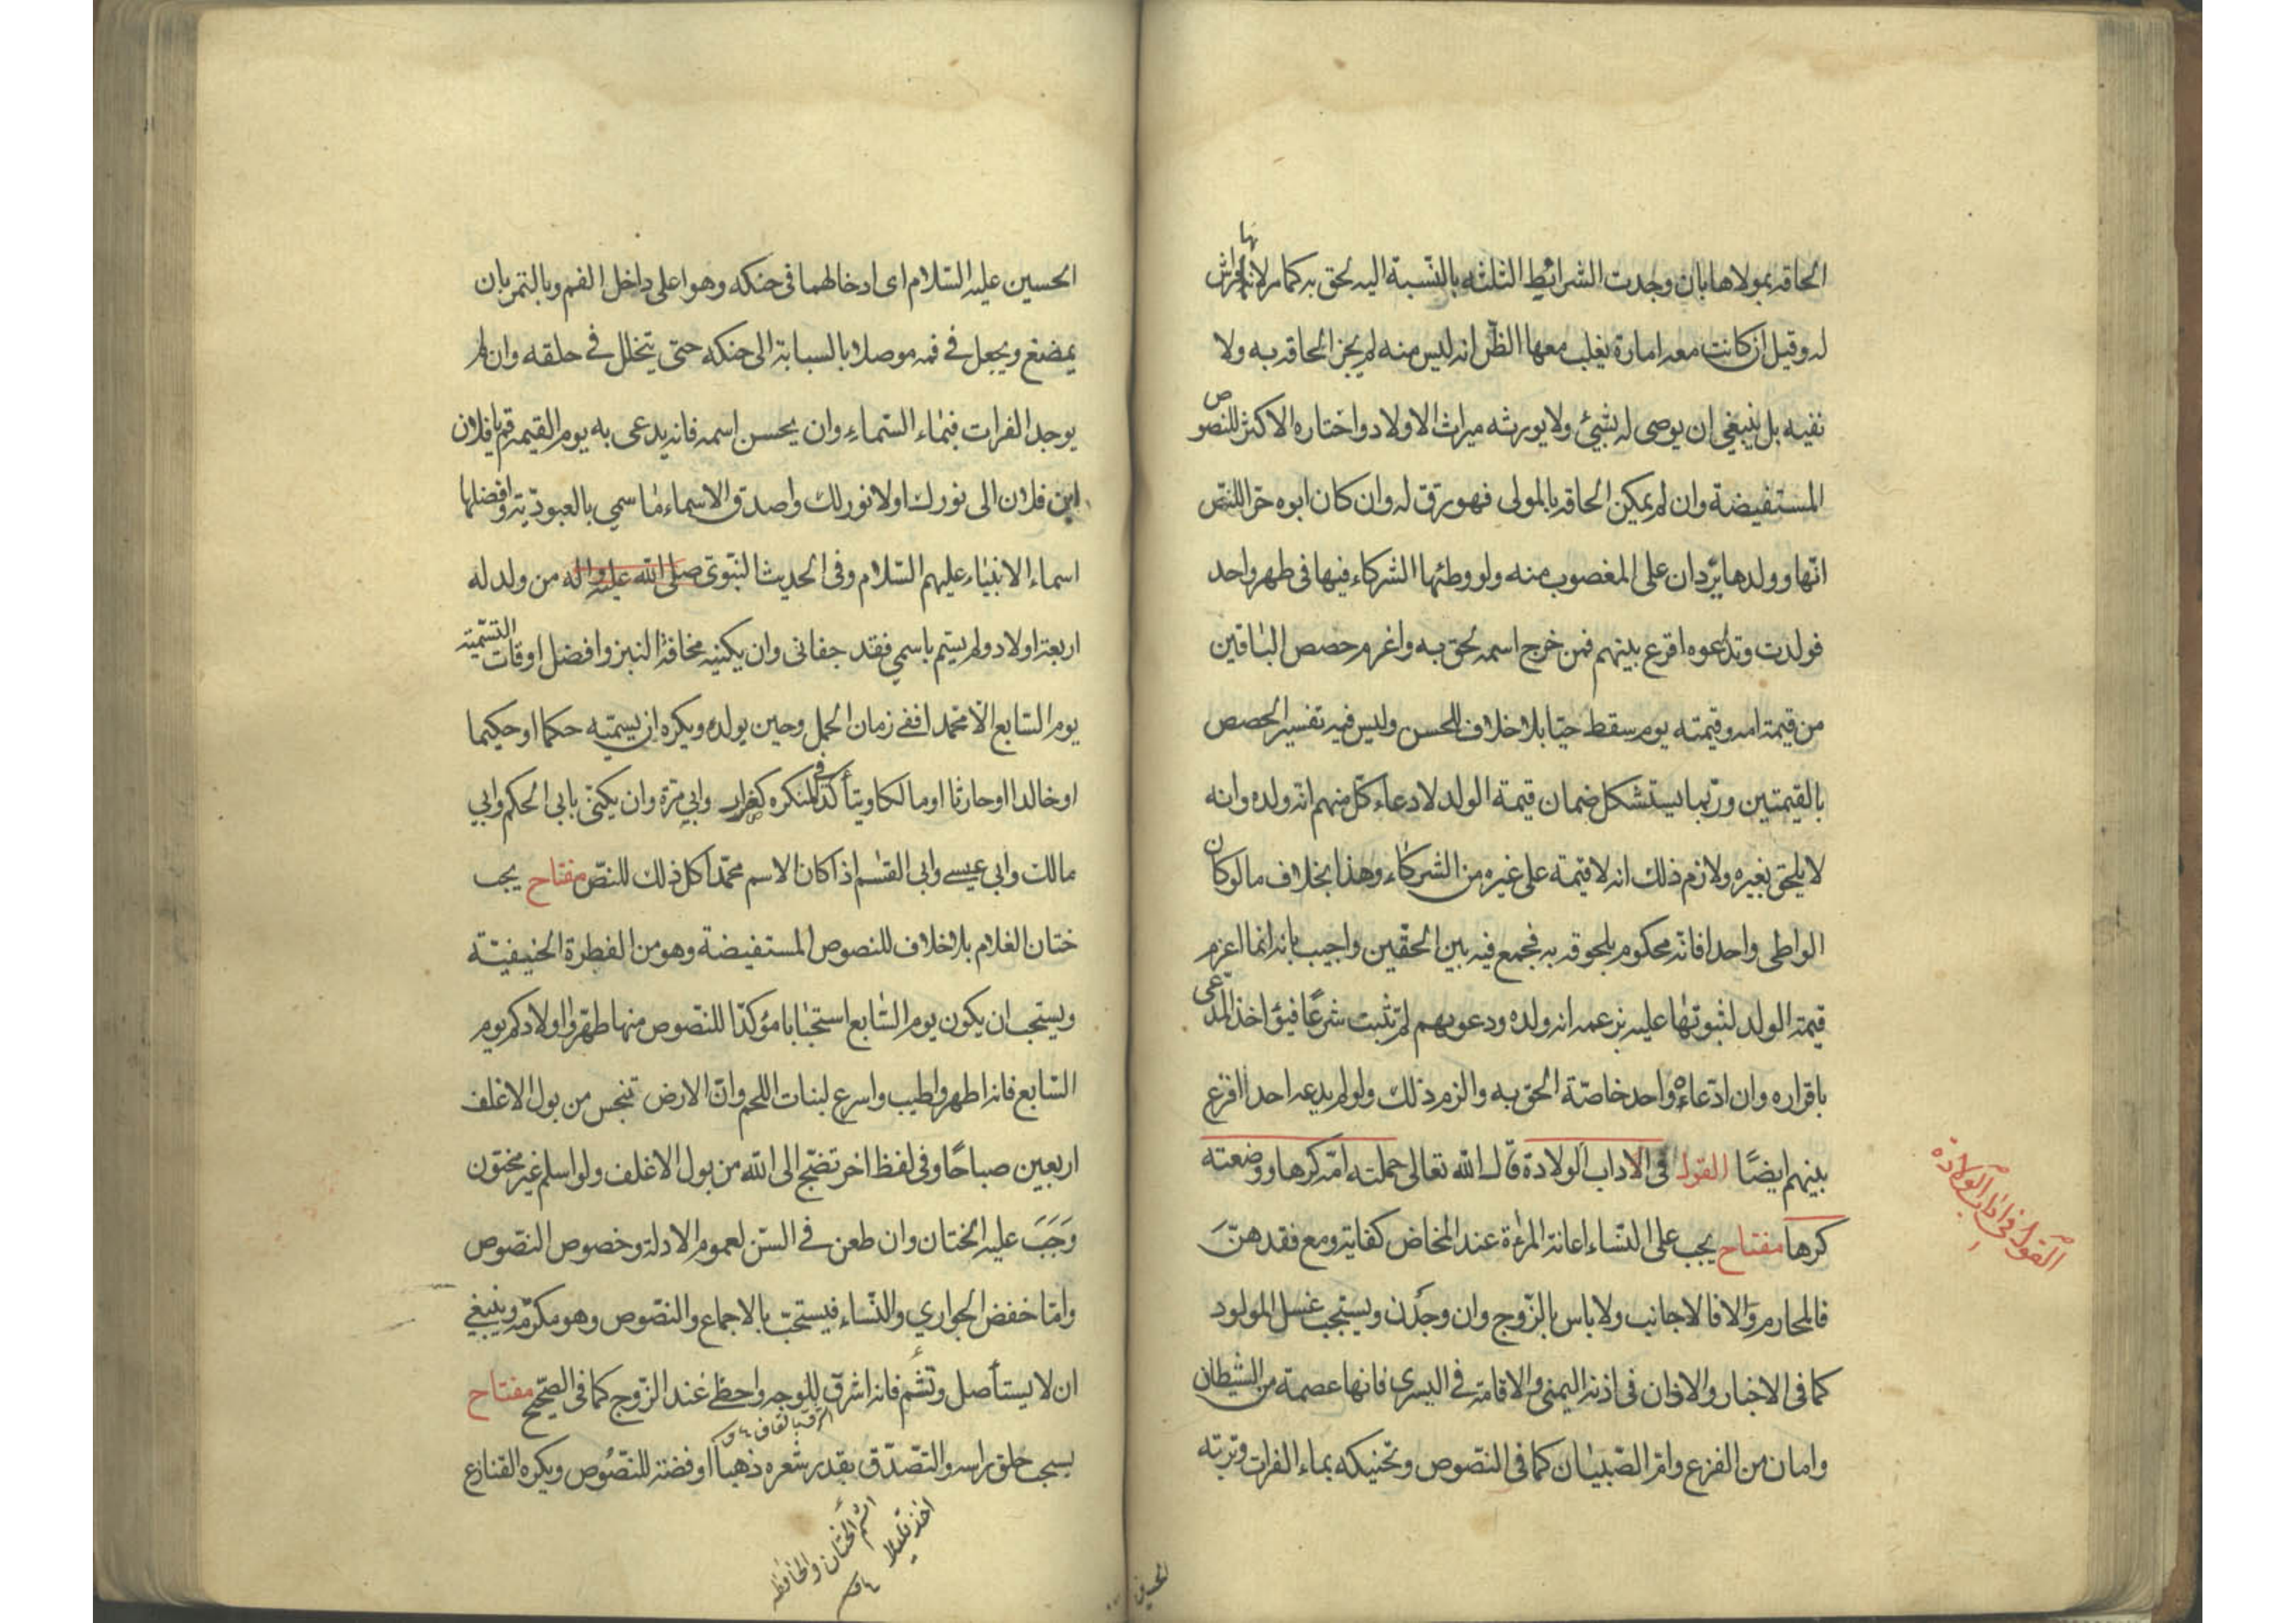 الحاقه بمولاها بان وجدت الشرائط الثلثه بالنسبة اليه لحق به كما مر لانها فراش
له وقيل ان كانت معه امارة يغلب معها الظن انه ليس منه لم يجز الحاقه به ولا
نفيه بل ينبغي ان يوصى له بشئ ولا يورثه ميراث الاولاد واختاره الاكثر للنصوص
المستفيضة وان لم يمكن الحاقه بالمولى فهو رق له وان كان ابوه حرا للنص
انها وولدها يردان على المغصوب منه ولو وطئها الشركاء فيها في طهر واحد
فولدت وتداعوه اقرع بينهم فمن خرج اسمه لحق به واغرم حصص الباقين
من قيمة امه وقيمته يوم سقط حيا بلا خلاف للحسن وليس فيه تفسير الحصص
بالقيمتين وربما يستشكل ضمان قيمة الولد لادعاء كل منهم انه ولده وانه
لا يلحق بغيره ولازم ذلك انه لا قيمة على غيره من الشركاء وهذا بخلاف ما لو كان
الواطى واحدا فانه محكوم بلحوقه به فجمع فيه بين الحقين واجيب بانه انما اغرم
قيمة الولد لثبوتها عليه بزعمه انه ولده ودعويهم لم تثبت شرعًا اخذ المدعى
باقراره وان ادعاه واحد خاصة الحق به والزم ذلك ولو لم يدعه احد اقرع
بينهم ايضًا القول في الاداب الولادة قال الله تعالى حملته امه كرها ووضعته
كرها مفتاح يجب على النساء اعانة المرءة عند المخاض كفاية ومع فقدهن
فالمحارم والا فالاجانب ولا باس بالزوج وان وجدن ويستحب غسل المولود
كما في الاخبار والاذان في اذنه اليمنى والاقامة في اليسرى فانها عصمة من الشيطان
وامان من الفزع وام الصبيان كما في النصوص وتحنيكه بماء الفرات وتربته
القول في اداب الولادة
الحسين
الحسين عليه السلام اى ادخالهما في حنكه وهو اعلى داخل الفم وبالتمر بان
يمضغ ويجعل في فمه موصلا بالسبابة الى حنكه حتى يتخلل في حلقه وان لم
يوجد الفرات فبماء السماء وان يحسن اسمه فانه يدعى به يوم القيمة قم يا فلان
ابن فلان الى نورك او لا نور لك واصدق الاسماء ما سمي بالعبودية وافضلها
اسماء الانبياء عليهم السلام وفي الحديث النبوى صلى الله عليه واله من ولد له
اربعة اولاد ولم يسم باسمي فقد جفانى وان يكنيه مخافة النبز وافضل اوقات التسمية
يوم السابع الا محمدا ففى زمان الحمل وحين يولد ويكره ان يسميه حكما او حكيما
او خالدا او حارثا او مالكا ويتأكد في وابي مرة وان يكنى بابى الحكم وابي
مالك وابي عيسى وابى القسم اذا كان الاسم محمدا كل ذلك للنص مفتاح يجب
ختان الغلام بلا خلاف للنصوص المستفيضة وهو من الفطرة الحنيفية
ويستحب ان يكون يوم السابع استحبابا مؤكدا للنصوص منها طهروا اولادكم يوم
السابع فانه اطهر واطيب واسرع لنبات اللحم وان الارض تنجس من بول الاغلف
اربعين صباحًا وفى لفظ اخر تضج الى الله من بول الاغلف ولو اسلم غير مختون
وَجَبَ عليه الختان وان طعن في السن لعموم الادلة وخصوص النصوص
واما خفض الجواري والنساء فيستحب بالاجماع والنصوص وهو مكرمة وينبغي
ان لا يستأصل وتشم فانه اشرق للوجه واحظى عند الزوج كما في الصحيح مفتاح
يسحب حلق راسه والتصدق بقدر شعره ذهبا او فضة للنصوص ويكره القنازع
اشم الختان والخافظه
اخذ قليلا